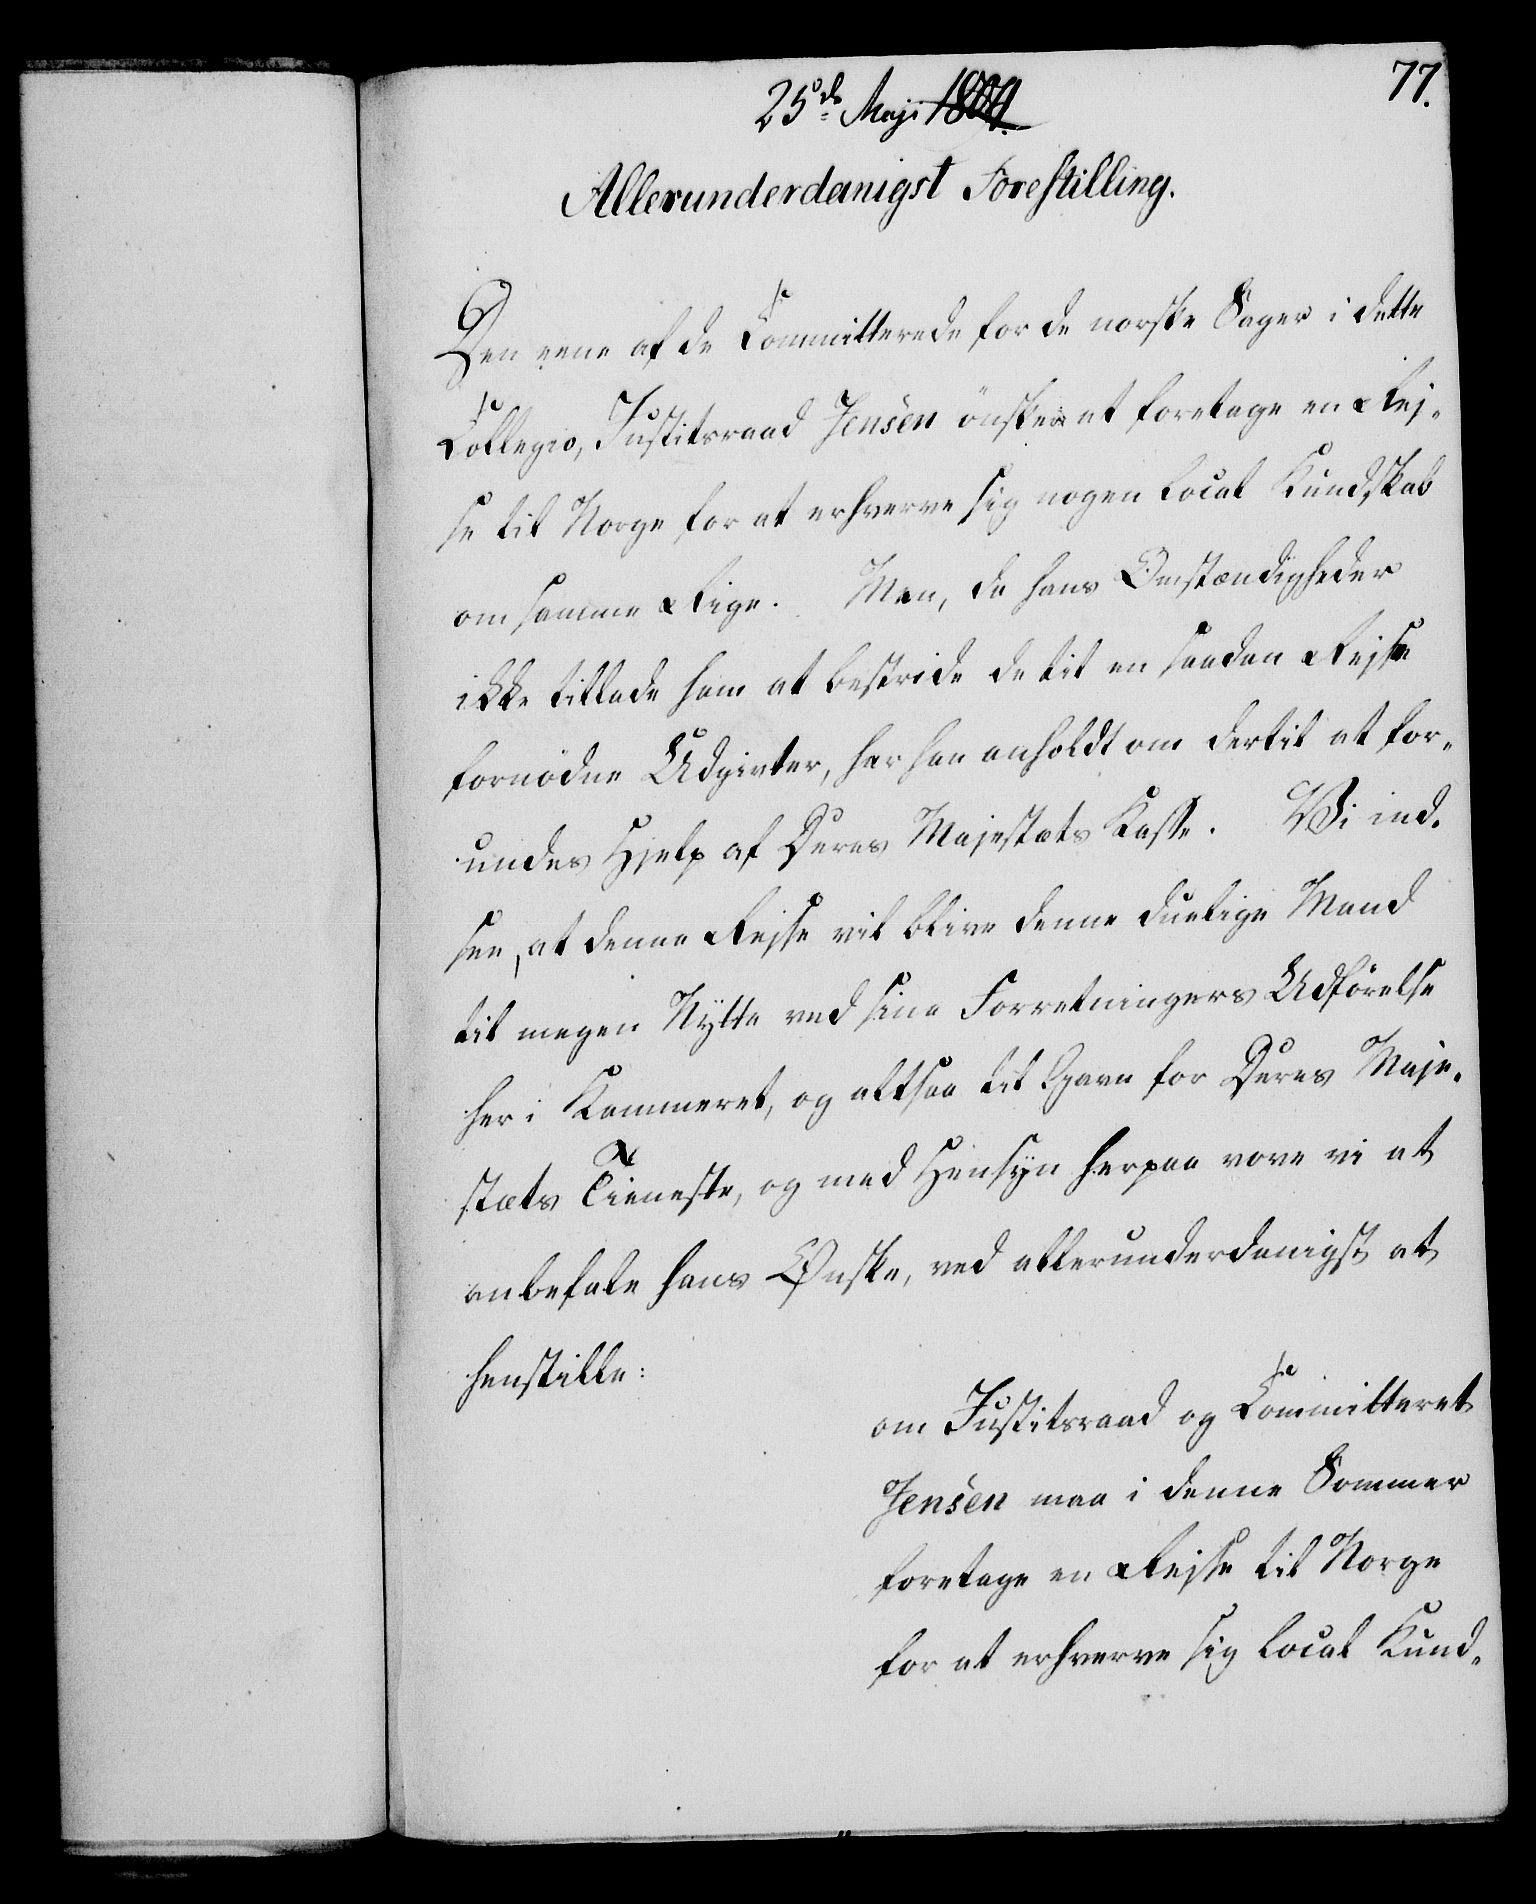 77.
25de Maji 1804.
Allerunderdanigst Forestilling.
Den eene af de Committerede for de norske Sager i dette
Collegio, Justitsraad Jensen ønsker at foretage en Rej-
se til Norge for at erhverve sig nogen local Kundskab
om samme Rige. Men, da hans Omstændigheder
ikke tillade ham at bestride de til en saadan Rejse
fornødne Udgivter, har han anholdt om dertil at for-
undes Hjelp af Deres Majestæts Kasse. Vi ind-
see, at denne Rejse vil blive denne duelige Mand
til megen Nytte ved sine Forretningers Udførelse
her i Kammeret, og altsaa til Gavn for Deres Maje-
stæts Tieneste, og med Hensyn herpaa vove vi at
anbefale hans Ønske, ved allerunderdanigst at
henstille:
om Justitsraad og Committeret
Jensen maa i denne Sommer
foretage en Rejse til Norge
for at erhverve sig local Kund-